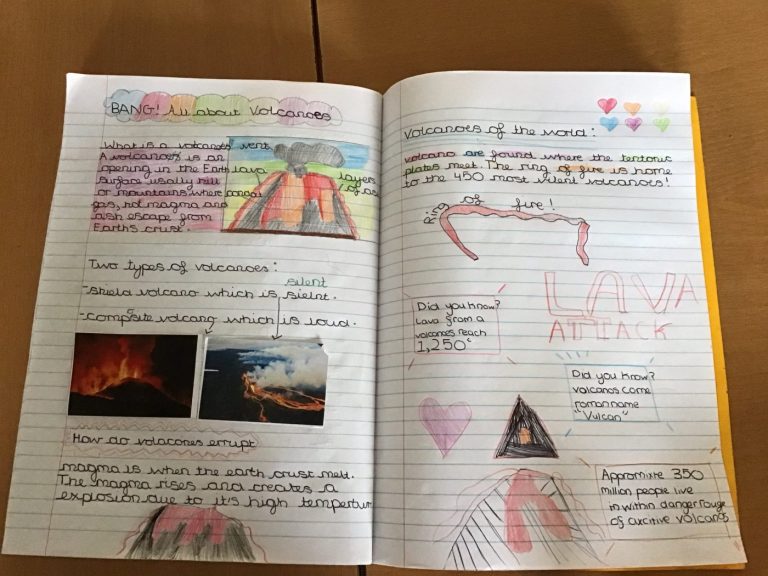 BANG! All about Volcanoes
What is a volcanoes
A volcanoes is an
opening in the Earth
surface usally hill
or mountains where
gas, hot magma and
ash escape from
Earth's crust.
vent
lava
layers
of as
Two types of volcanoes:
silent
-shield volcano which is sielnt.
-composite volcano which is loud.
How do volacones errupt
magma is when the earth crust melt.
The magma rises and creates a
explosion due to it's high tempertur
Volcanoes of the world:
volcano are found where the tentonic
plates meet. The ring of fire is home
to the 450 most vilent volcanoes!
Ring of fire!
LAVA
ATTACK
Did you know?
Lava from a
volcanoes reach
1,250°
Did you know?
volcanos come
roman name
"Vulcan"
Appromixte 350
million people live
in within danger rouge
of axcitive volcanos